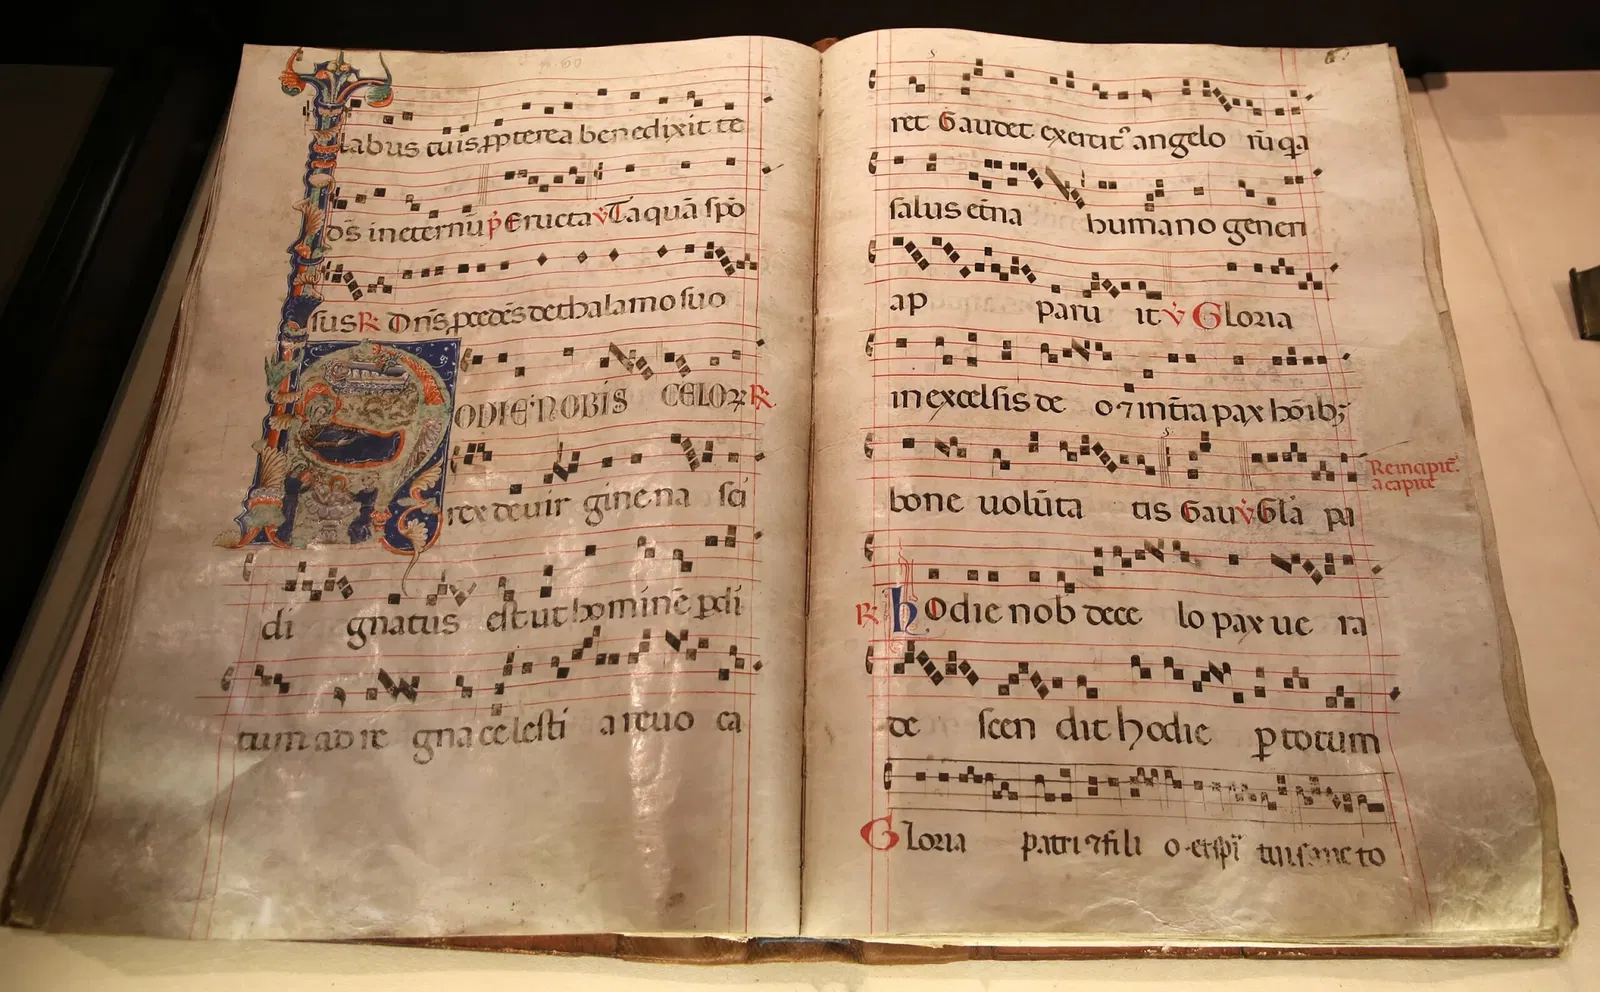 labus tuis ꝓpterea benedixit te
ds̄ in eternū p̄ Eructa v̄ Taquā spō
sus ℟ Dn̄s pcedēs de thalamo suo
ODIE NOBIS CELOꝜ ℟
rex de uir gine na sci
di gnatus est ut homine ̄ ꝑdi
tum ad re gna celesti a reuo ca
ret Gaudet exercit᾿ angelo rū q̄a
salus et̄na humano generi
ap paru it v̄ Gloria
in excelsis de o ⁊ in t̄ra pax hōibꝫ
bone uolūta tis Gau v̄ Gl̄a pa
Reincipit̄
a capite
℟ hOdie nob de ce lo pax ue ra
de scen dit hodie ꝑ totum
Gloria patri ⁊ fili o et sp̄i tui sanc to